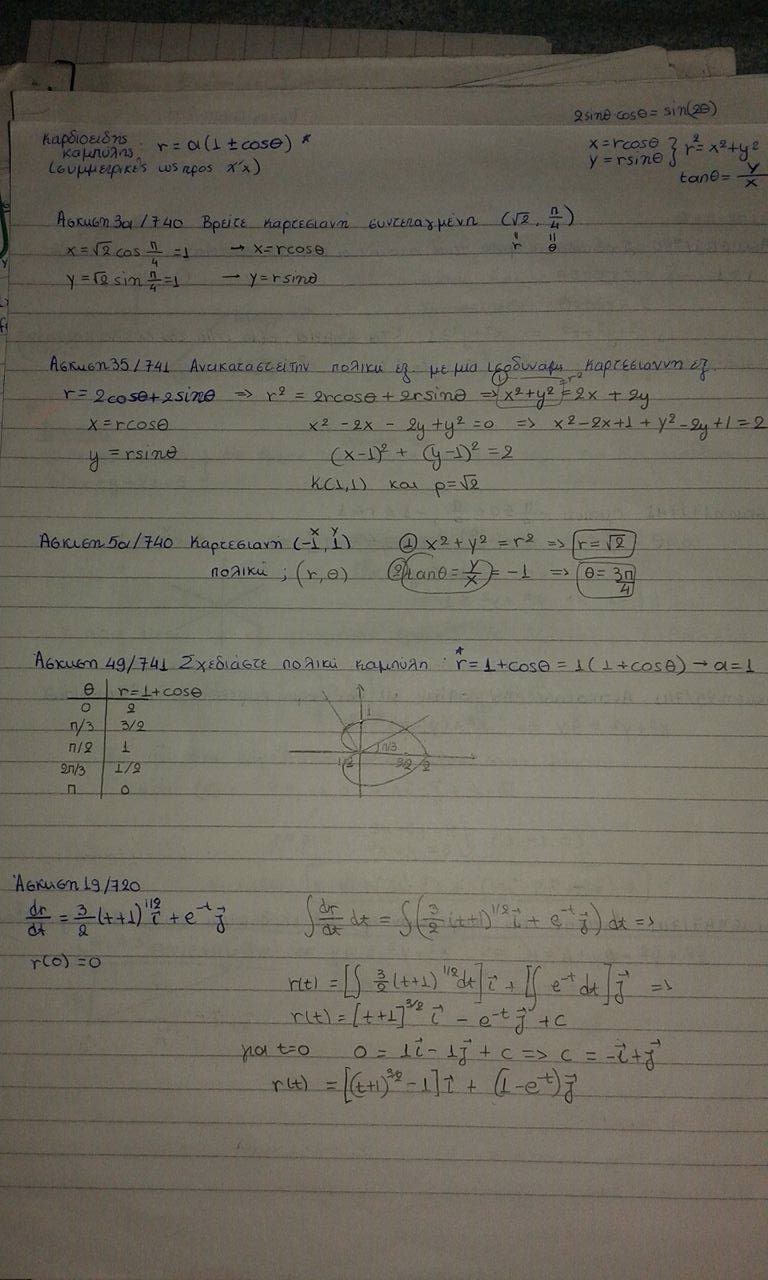 2sinθ·cosθ = sin(2θ)
Καρδιοειδης καμπυλης : r = α(1 ± cosθ) *
(συμμετρικες ως προς x'x)
x = rcosθ
y = rsinθ } r² = x²+y²
tanθ = y/x
Ασκηση 3α/740 Βρειτε καρτεσιανη συντεταγμενη (√2, π/4)
r θ
x = √2 cos π/4 = 1 → x = rcosθ
y = √2 sin π/4 = 1 → y = rsinθ
Ασκηση 35/741 Ανακαταστειτην πολικη εξ. με μια ισοδυναμη καρτεσιαννη εξ.
r = 2cosθ + 2sinθ => r² = 2rcosθ + 2rsinθ => ① x²+y² = 2x + 2y
= r²
x = rcosθ x² - 2x - 2y + y² = 0 => x² - 2x + 1 + y² - 2y + 1 = 2
y = rsinθ (x-1)² + (y-1)² = 2
K(1,1) και ρ = √2
x y
Ασκηση 5α/740 Καρτεσιανη (-1, 1) ① x² + y² = r² => r = √2
πολικη ; (r, θ) ② tanθ = y/x = -1 => θ = 3π/4
Ασκηση 49/741 Σχεδιαστε πολικη καμπυλη : *r = 1 + cosθ = 1(1+cosθ) → α = 1
θ r = 1 + cosθ
0 2
π/3 3/2
π/2 1
2π/3 1/2
π 0
1
π/3
1/2 3/2 2
Ασκηση 19/720
dr/dt = 3/2 (t+1)^1/2 i⃗ + e^-t j⃗ ∫ dr/dt dt = ∫ (3/2 (t+1)^1/2 i⃗ + e^-t j⃗) dt =>
r(0) = 0
r(t) = [∫ 3/2 (t+1)^1/2 dt] i⃗ + [∫ e^-t dt] j⃗ =>
r(t) = [t+1]^3/2 i⃗ - e^-t j⃗ + c
για t=0 0 = 1i⃗ - 1j⃗ + c => c = -i⃗ + j⃗
r(t) = [(t+1)^3/2 - 1] i⃗ + (1 - e^-t) j⃗